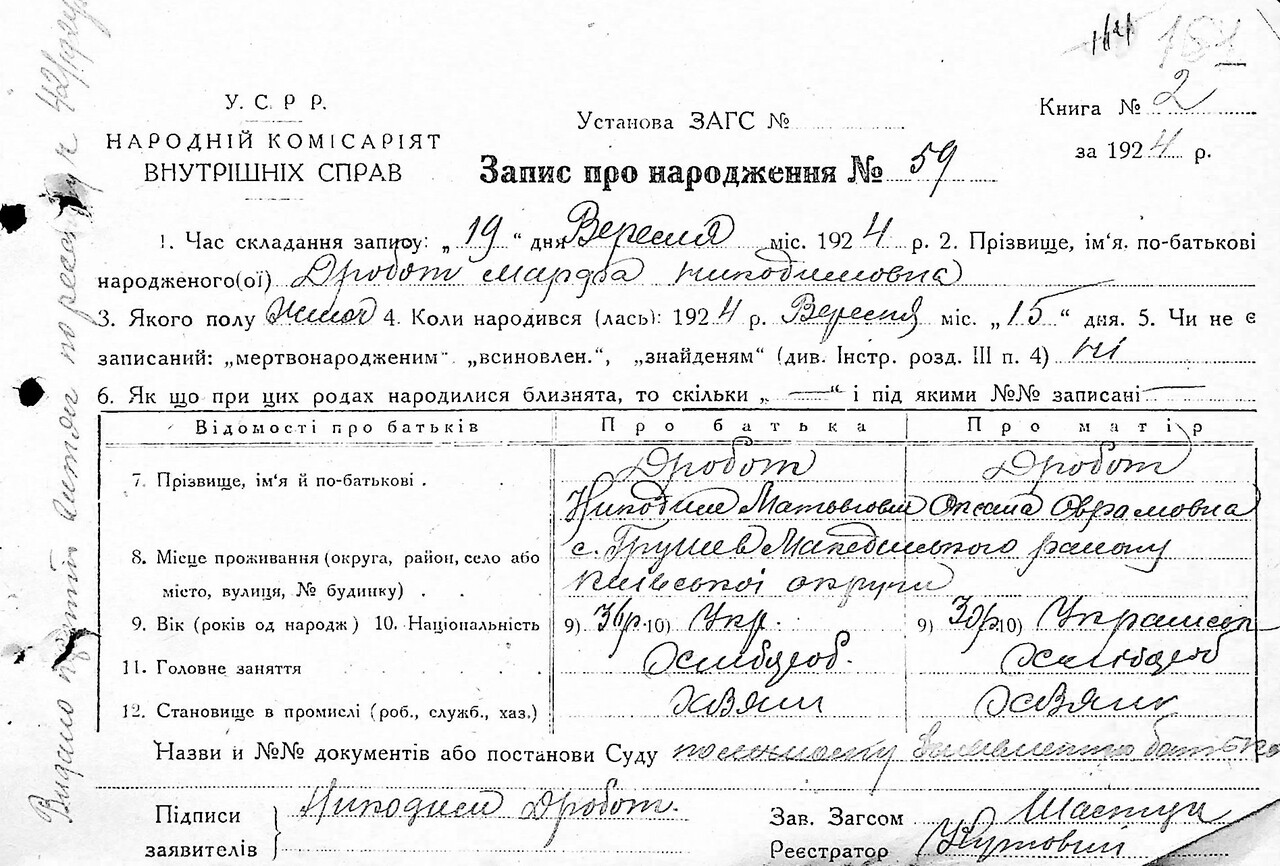 2
Книга №
У. С. Р. Р.
НАРОДНІЙ КОМІСАРІЯТ
ВНУТРІШНІХ СПРАВ
Установа ЗАГС №
за 1924 р.
Запис про народження № 59
1. Час складання запису: „ 19 “ дня Вересня міс. 1924 р. 2. Прізвище, ім'я. по-батькові
народженого(ої) Дробот Марфа Никодимовна
3. Якого полу 4. Коли народився (лась): 1924 р. Вересня міс. „ 15 “ дня. 5. Чи не є
записаний: „мертвонародженим“ „всиновлен.“, „знайденям“ (див. Інстр. розд. III п. 4) ні
6. Як що при цих родах народилися близнята, то скільки „ — “ і під якими №№ записані —
Відомості про батьків Про батька Про матір
7. Прізвище, ім'я й по-батькові . Дробот Дробот
Никодим Оксана Оврамовна
8. Місце проживання (округа, район, село або с. Грушев Македонського району
місто, вулиця, № будинку) . Київської округи
9. Вік (років од народж) 10. Національність 9) 36р. 10) Укр. 9) 30р. 10)
11. Головне заняття Хлибороб. Хлибороб
12. Становище в промислі (роб., служб., хаз.)
Назви и №№ документів або постанови Суду батька
Підписи Никодим Дробот.
заявителів
Зав. Загсом
Реєстратор Кутовий